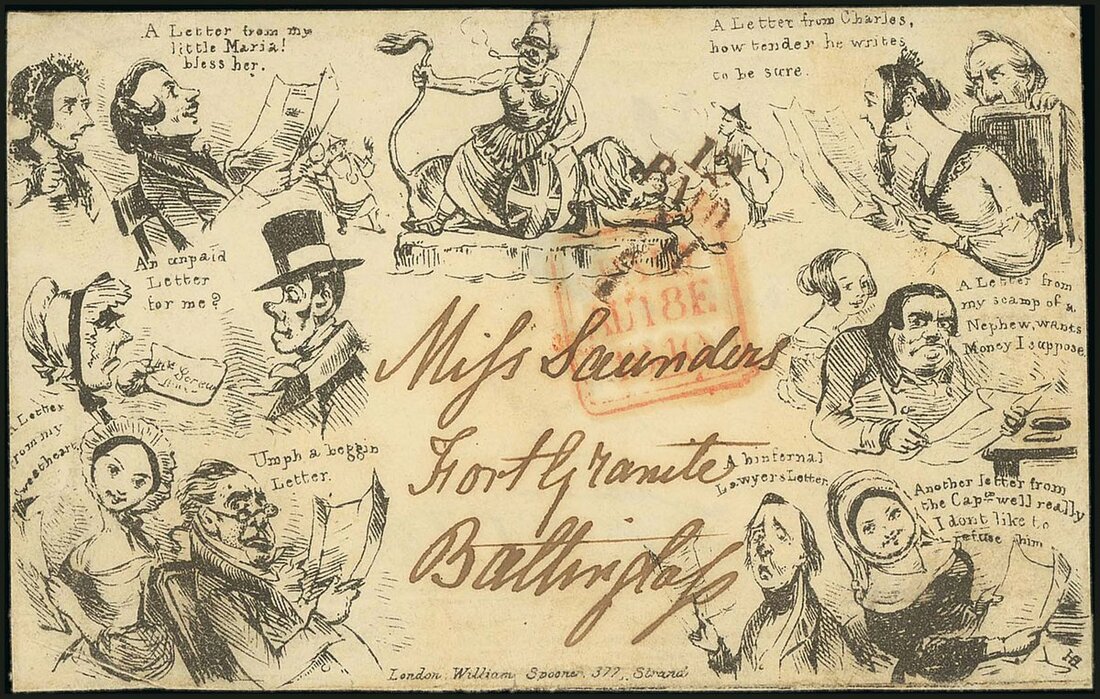 A Letter from my
little Maria!
bless her.
A Letter from Charles,
how tender he writes
to be sure.
An unpaid
Letter
for me?
A Letter from
my scamp of a
Nephew, wants
Money I suppose
A Letter
from my
Sweetheart
Umph a beggin
Letter.
A hinternal
Lawyers Letter
Another letter from
the Capn. well really
I dont like to
refuse him
Miss Saunders
Fort Granite
Baltinglass
12
JL 18 E
London, William Spooner, 377, Strand